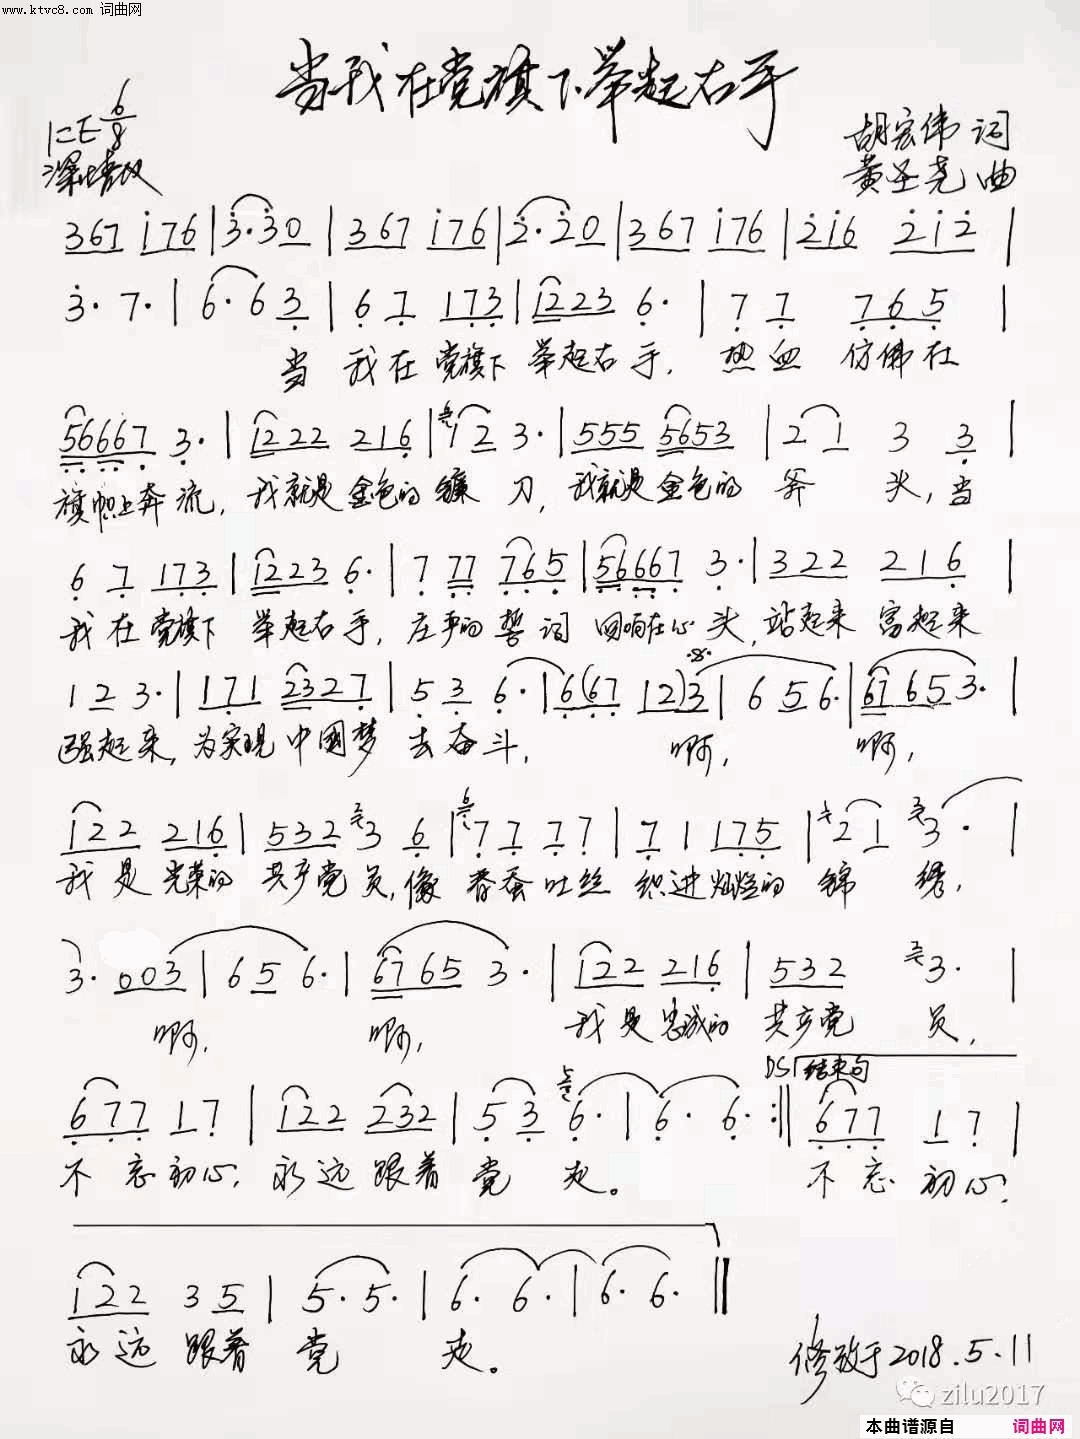 www.ktvc8.com 词曲网
当我在党旗下举起右手
1=E 6/8
深情
胡宏伟 词
黄圣尧 曲
367 176 | 3·30 | 367 176 | 2·20 | 367 176 | 216 212 |
3· 7· | 6· 6 3 | 6 7 173 | 1223 6· | 7 7 765 |
当 我在党旗下 举起右手, 热血 仿佛在
56667 3· | 1222 216 | 12 3· | 555 5653 | 2 1 3 3 |
旗帜上奔流, 我就是金色的镰刀, 我就是金色的斧头, 当
6 7 173 | 1223 6· | 7 77 765 | 56667 3· | 322 216 |
我在党旗下 举起右手, 庄严的誓词 回响在心头, 站起来 富起来
12 3· | 171 2327 | 5 3 6· | 6(67 12)3 | 6 5 6· | 67 65 3· |
强起来, 为实现中国梦 去奋斗, 啊, 啊,
122 216 | 532 3 6 | 7 7 7 7 | 7 1 175 | 2 1 3· |
我是光荣的 共产党员, 像春蚕吐丝 织进灿烂的锦绣,
3· 003 | 6 5 6· | 67 65 3· | 122 216 | 532 3· |
啊, 啊, 我是忠诚的 共产党员,
DS 结束句
677 17 | 122 232 | 5 3 6· | 6· 6· :|| 677 1 7 |
不忘初心, 永远跟着党走。 不忘初心,
122 3 5 | 5· 5· | 6· 6· | 6· 6· ||
永远跟着党 走。
修改于2018.5.11
zilu2017
本曲谱源自 词曲网